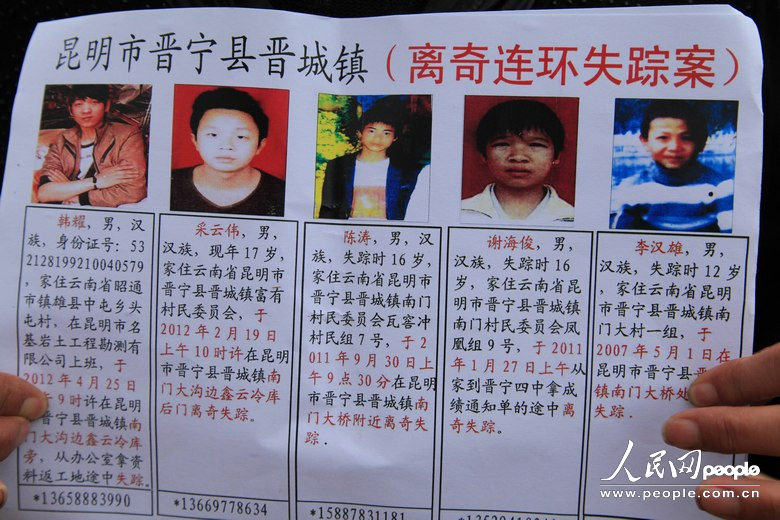 昆明市晋宁县晋城镇（离奇连环失踪案）
韩耀，男，汉
族，身份证号：53
2128199210040579
，家住云南省昭通
市镇雄县中屯乡头
屯村，在昆明市名
基岩土工程勘测有
限公司上班，于
2012年4月25日
午9时许在昆明
晋宁县晋城镇南
门大沟边鑫云冷库
旁，从办公室拿资
料返工地途中失踪。
*13658883990
采云伟，男，
汉族，现年17岁，
家住云南省昆明市
晋宁县晋城镇富有
村民委员会，于
2012年2月19日
上午10时许在昆明
市晋宁县晋城镇南
门大沟边鑫云冷库
后门离奇失踪。
*13669778634
陈涛，男，汉
族，失踪时16岁，
家住云南省昆明市
晋宁县晋城镇南门
村民委员会瓦窑冲
村民组7号，于2
011年9月30日上
午9点30分在昆明
市晋宁县晋城镇南
门大桥附近离奇失
踪．
*15887831181
谢海俊，男，
汉族，失踪时16
岁，家住云南省昆
明市晋宁县晋城镇
南门村民委员会凤
凰组9号，于2011
年1月27日上午从
家到晋宁四中拿成
绩通知单的途中离
奇失踪．
李汉雄，男，
汉族，失踪时12岁，
家住云南省昆明市
晋宁县晋城镇
南门大村一组，于
2007年5月1日在
昆明市晋宁县晋城
镇南门大桥处
失踪．
人民网 people
www.people.com.cn